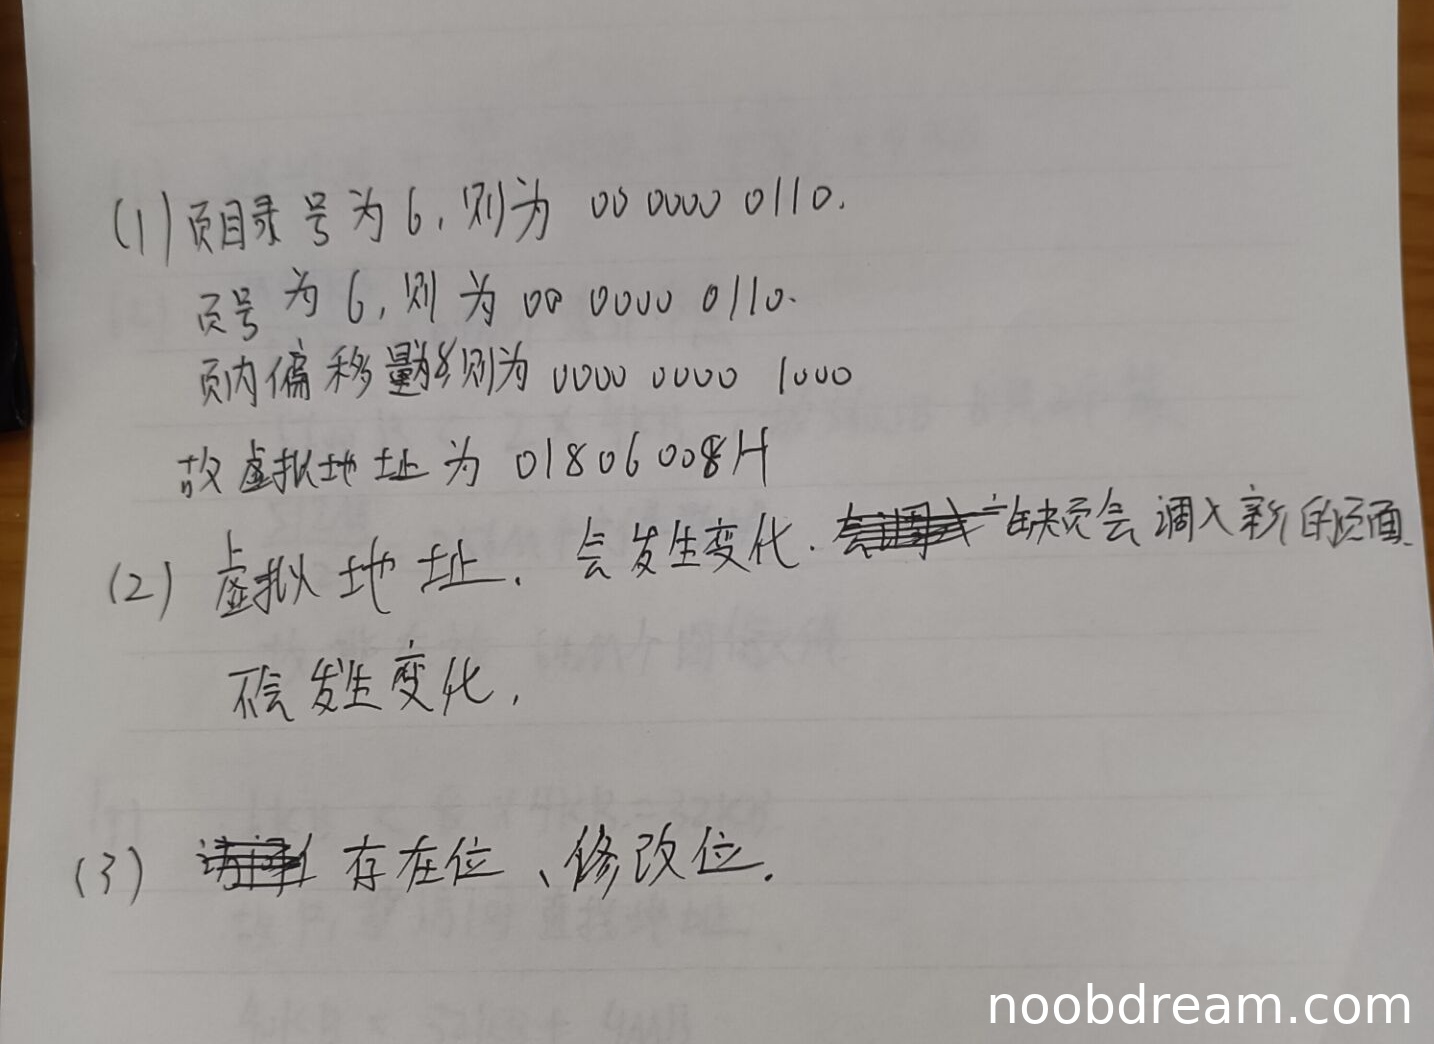 (1) 页目录号为6,则为 00 0000 0110.
页号为6,则为 00 0000 0110.
页内偏移量为8则为 0000 0000 1000
故虚拟地址为 01806008H
(2) 虚拟地址. 会发生变化. 缺页会调入新的页面.
不会发生变化,
(3) 存在位、修改位.
noobdream.com